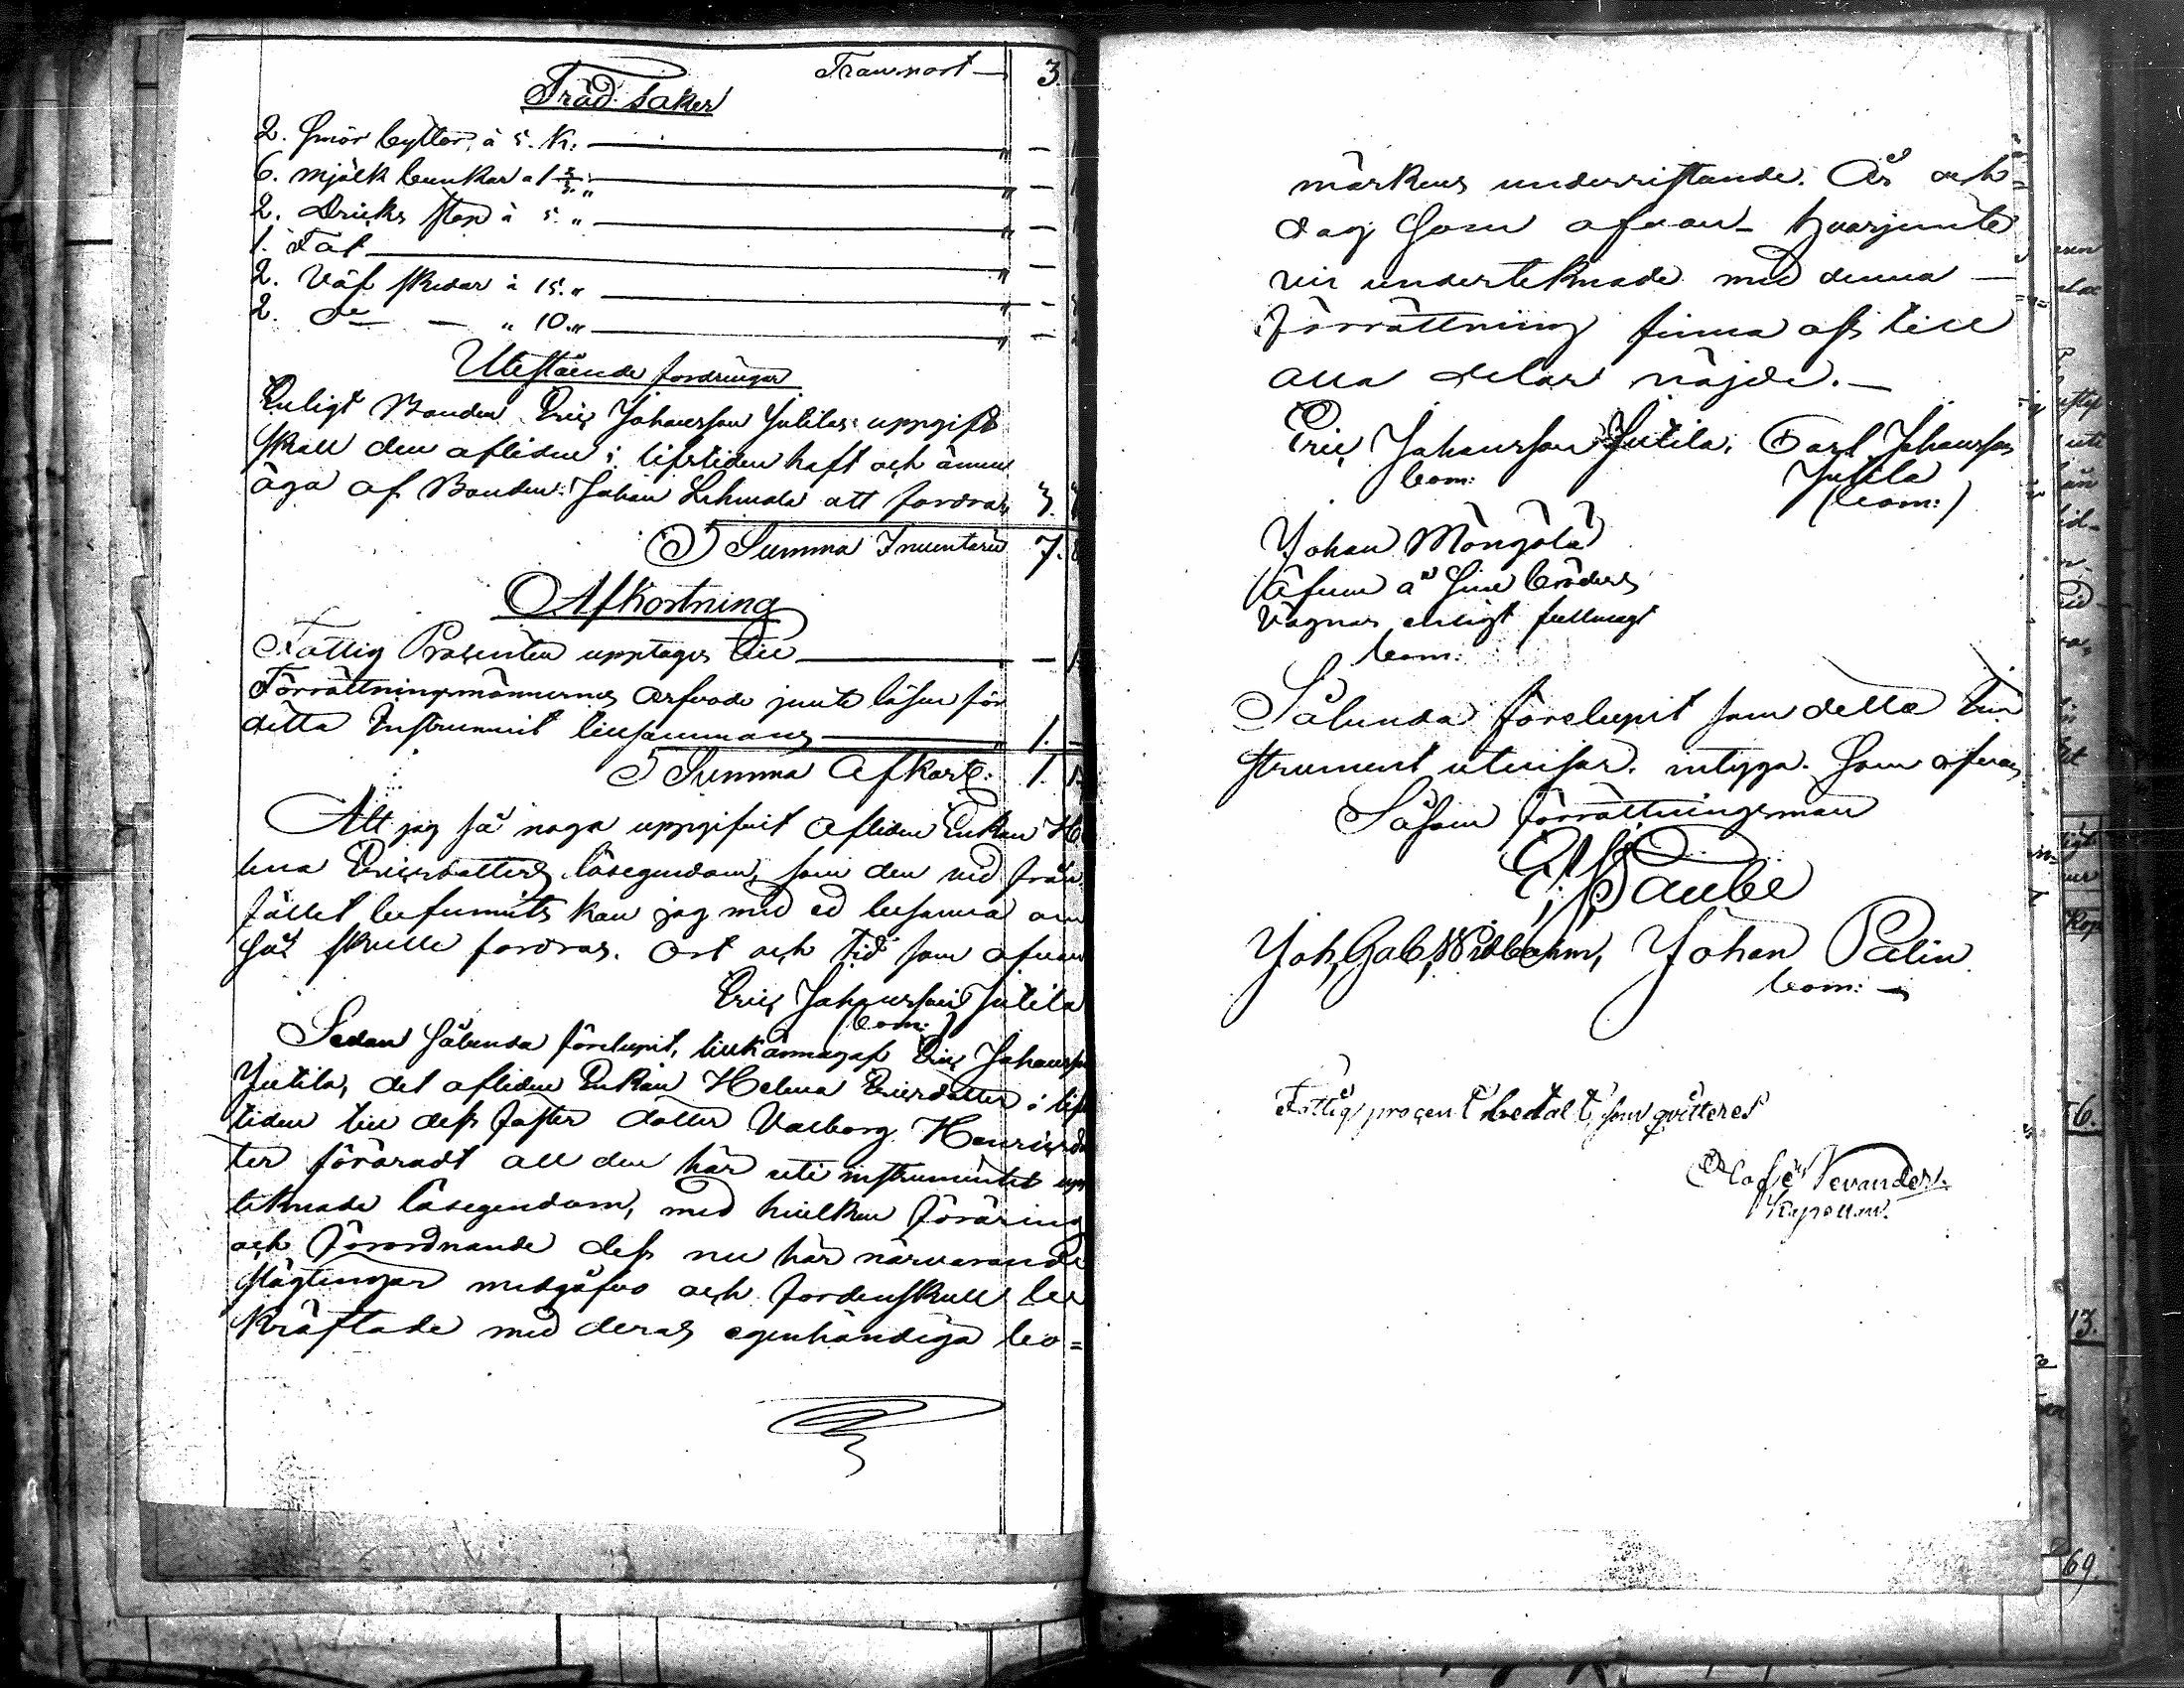 Transport — 3.
Träd saker
2. Smör byttor, à 5. K: — " —
6. mjölk bunkar a 1 2/3. " — " —
2. Dricks stop à 5. " — " —
1. Fat — " —
2. Väf skedar à 15. " — " —
2. De — " 10. " — " —
Utestående fordringar
Enligt Bonden Eric Johansson Jutilas uppgift
skall den aflidne i lifstiden haft och ännu
äga af Bonden Johan Lehmola att fordra, 3.
Summa Inventarii 7.
Afkortning
Fattig Procenten upptages till — " —
Förrättningsmännernes arfvode jemte lösen för
detta Instrument tillsammans — " 1. —
Summa Afkort: 1.
Att jag så noga uppgifvit aflidne Enkan He
lena Ericsdotters lösegendom, som den vid från
fället befunnits kan jag med ed besanna om
så skulle fordras. Ort och tid som ofvan
Eric Johansson Jutila
(bom:)
Sedan sålunda förelupit, tillkännagaf Eric Johansson
Jutila, det aflidne Enkan Helena Ericsdotter i lifs
tiden till dess foster dotter Valborg Henricsdot
ter föräradt all den här uti instrumentet upp
teknade lösegendom, med hvilken föräring
och förordnande dess nu här närvarande
slägtingar medgåfvo och fordenskull be
kräftade med deras egenhändiga bo=
märkens underristande. År och
dag som ofvan — hvarjemte
vi undertecknade med denna —
förrättning finna oss till
alla delar nöjde. —
Eric Johansson Jutila, Carl Johansson
bom: Jutila
(bom:)
Johan Mångåla
äfven å sine bröders
vägnar enligt fullmagt
bom:
Sålunda förelupit som detta In
strument utvisar. intyga. Som ofvan
Såsom förrättningsman
Taube
Joh, Gab, Widbohm, Johan Palin
bom: —
Fattig procent betalt, som qvitteres
Olof Levander.
Kapellan.
6.
13.
69